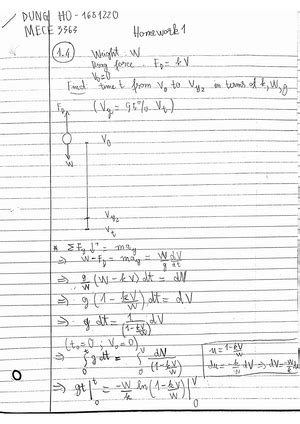 DUNG HO - 1681220
MECE 3363
Homework 1
1.4
Weight: W
Drag force: F_D = kV
V_0 = 0
Find time t from V_0 to V_{y2} in terms of k, W, g
F_D
(V_{y2} = 95% V_t)
W
V_0
V_{y2}
V_t
* ΣF_y ↓+ = ma_y
⇒ W - F_D = ma_y = W/g dV/dt
⇒ g/W (W - kV) dt = dV
⇒ g (1 - kV/W) dt = dV
⇒ g dt = 1/(1 - kV/W) dV
(t_0 = 0 ; V_0 = 0)
⇒ ∫_0^t g dt = ∫_0^V dV/(1 - kV/W)
u = 1 - kV/W
du = -k/W dV ⇒ dV = -W/k du
⇒ gt |_0^t = -W/k ln(1 - kV/W) |_0^V